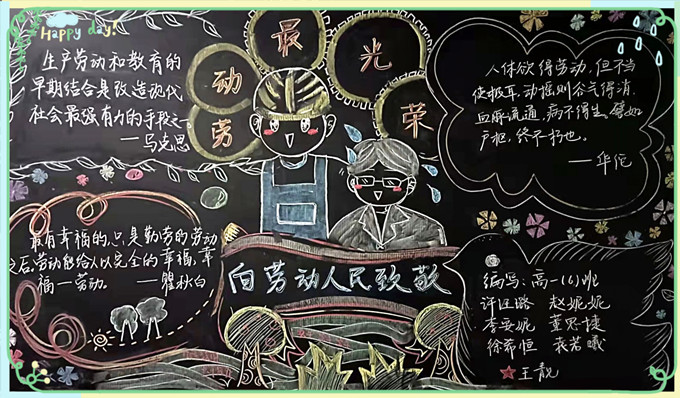 Happy day!
劳动最光荣
生产劳动和教育的
早期结合是改造现代
社会最强有力的手段之一
——马克思
人体欲得劳动，但不当
使极耳，动摇则谷气得消，
血脉流通，病不得生，譬如
户枢，终不朽也。
——华佗
最有幸福的，只是勤劳的劳动
之后，劳动能给人以完全的幸福，幸
福—劳动。——瞿秋白
向劳动人民致敬
编写：高一(6)班
赵妮妮
李妥妮 董思捷
徐希恒 袁若曦
王靓